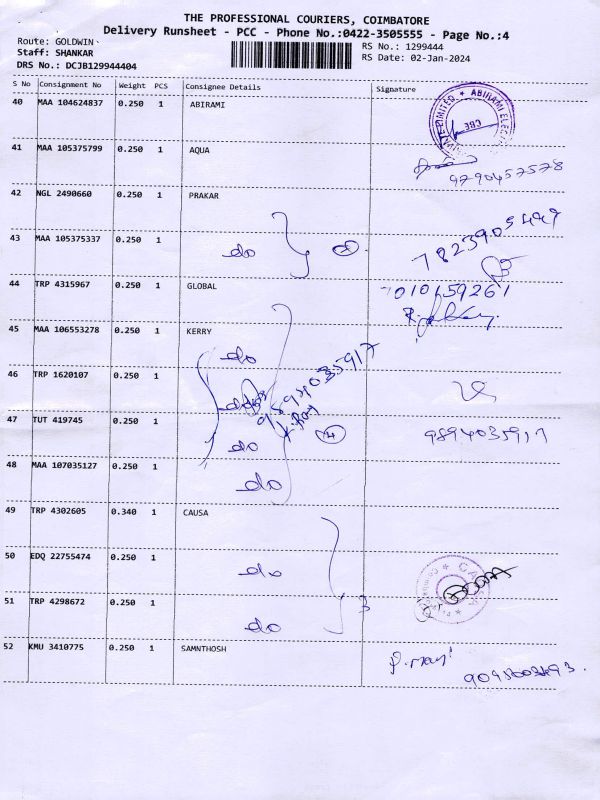 THE PROFESSIONAL COURIERS, COIMBATORE
Delivery Runsheet - PCC - Phone No.:0422-3505555 - Page No.:4
Route: GOLDWIN
Staff: SHANKAR
DRS No.: DCJB129944404
RS No.: 1299444
RS Date: 02-Jan-2024
S No Consignment No Weight PCS Consignee Details Signature
40 MAA 104624837 0.250 1 ABIRAMI
ABIRAMI
LIMITED
CBE
41 MAA 105375799 0.250 1 AQUA
9790457578
42 NGL 2490660 0.250 1 PRAKAR
43 MAA 105375337 0.250 1 do
44 TRP 4315967 0.250 1 GLOBAL
7010159261
45 MAA 106553278 0.250 1 KERRY
do
46 TRP 1620107 0.250 1 do
47 TUT 419745 0.250 1 do 4
48 MAA 107035127 0.250 1 do
49 TRP 4302605 0.340 1 CAUSA
50 EDQ 22755474 0.250 1 do
51 TRP 4298672 0.250 1 do 3
52 KMU 3410775 0.250 1 SAMNTHOSH